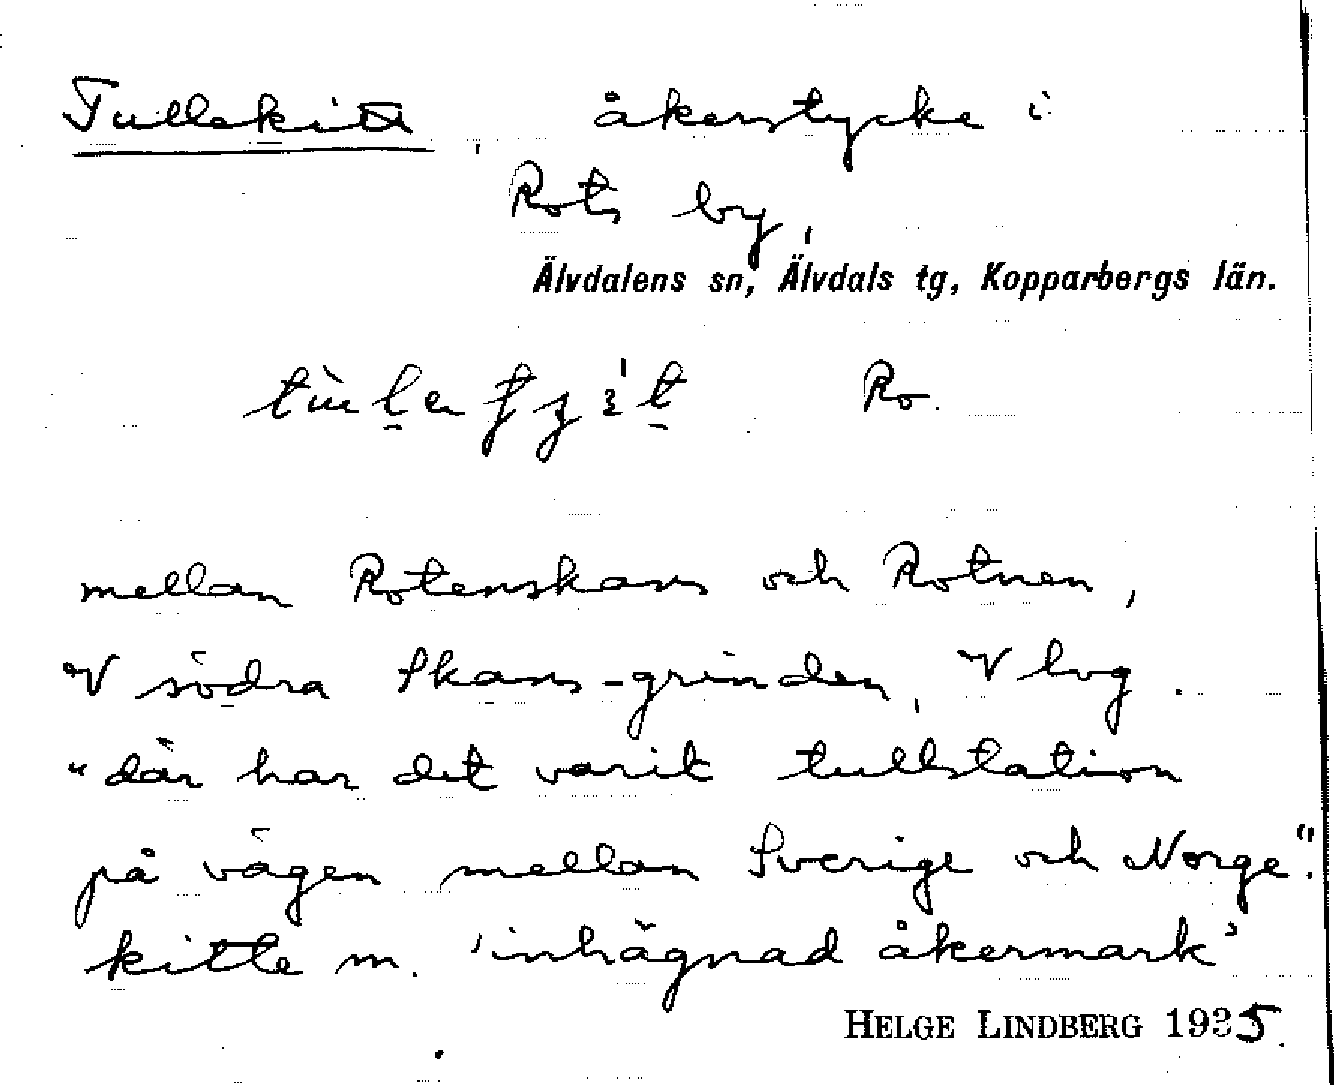 Tullekitt, åkerstycke i
Rots by,
Älvdalens sn, Älvdals tg, Kopparbergs län.
Ro.
mellan Rotenskans och Rotnen,
V södra Skans-grinden, V lvg.
"där har det varit tullstation
på vägen mellan Sverige och Norge".
kitte m. 'inhägnad åkermark'
HELGE LINDBERG 1935.